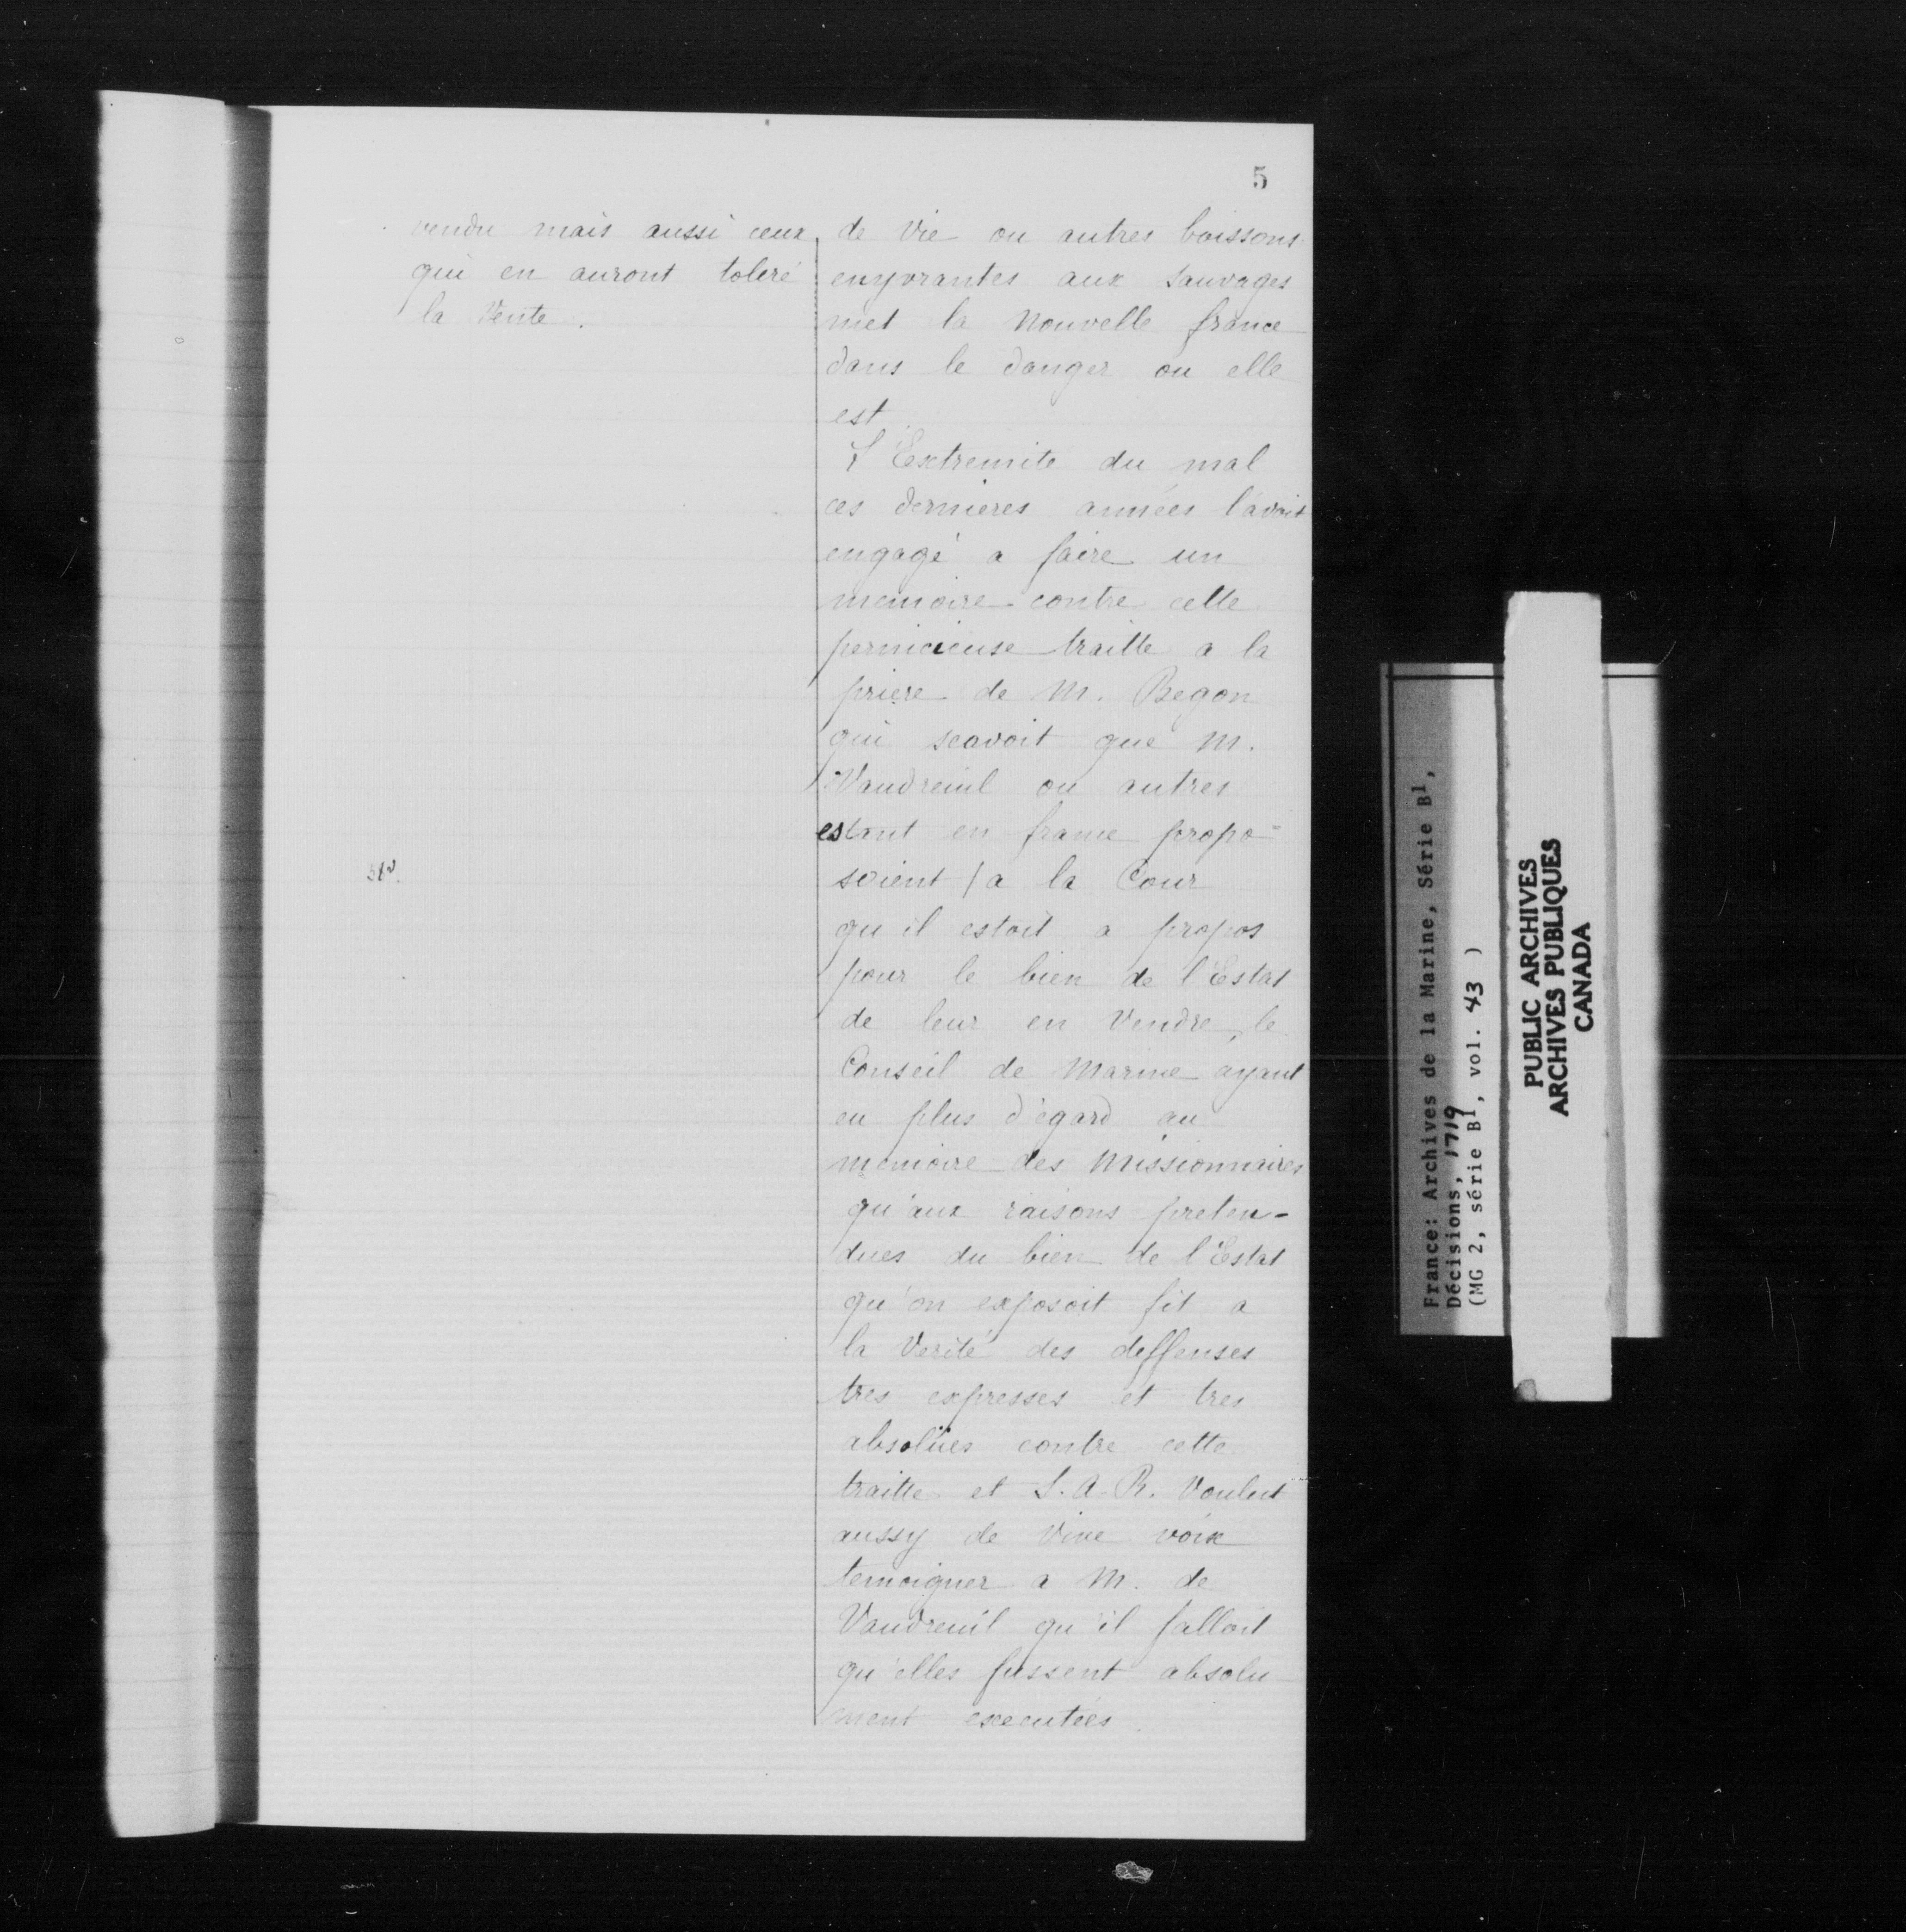 5
vendu mais aussi ceux
qui en auront toleré
la Vente.
de Vie ou autres boissons
enyvrantes aux sauvages
met la Nouvelle france
dans le danger ou elle
est
L'Extremité du mal
ces dernieres années l'avoit
engagé a faire un
memoire contre cette
pernicieuse traitte a la
priere de M. Begon
qui scavoit que M.
Vaudreuil ou autres
estant en france propo-
soient / a la Cour
qu'il estoit a propos
pour le bien de l'Estat
de leur en Vendre, le
Conseil de Marine ayant
eu plus d'égard au
memoire des Missionnaires
qu'aux raisons preten-
dues du bien de l'Estat
qu'on exposoit fit a
la Verité des deffenses
tres expresses et tres
absolües contre cette
traitte et S. A. R. Voulut
aussy de Vive voix
temoigner a M. de
Vaudreuil qu'il falloit
qu'elles fussent absolu-
ment executées.
France: Archives de la Marine, Série B1,
Décisions, 1719
(MG 2, série B1, vol. 43 )
PUBLIC ARCHIVES
ARCHIVES PUBLIQUES
CANADA